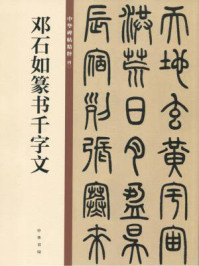 邓石如篆书千字文
中华碑帖精粹
中华书局
天地玄黃宇宙
洪荒日月盈昃
辰宿列張寒來